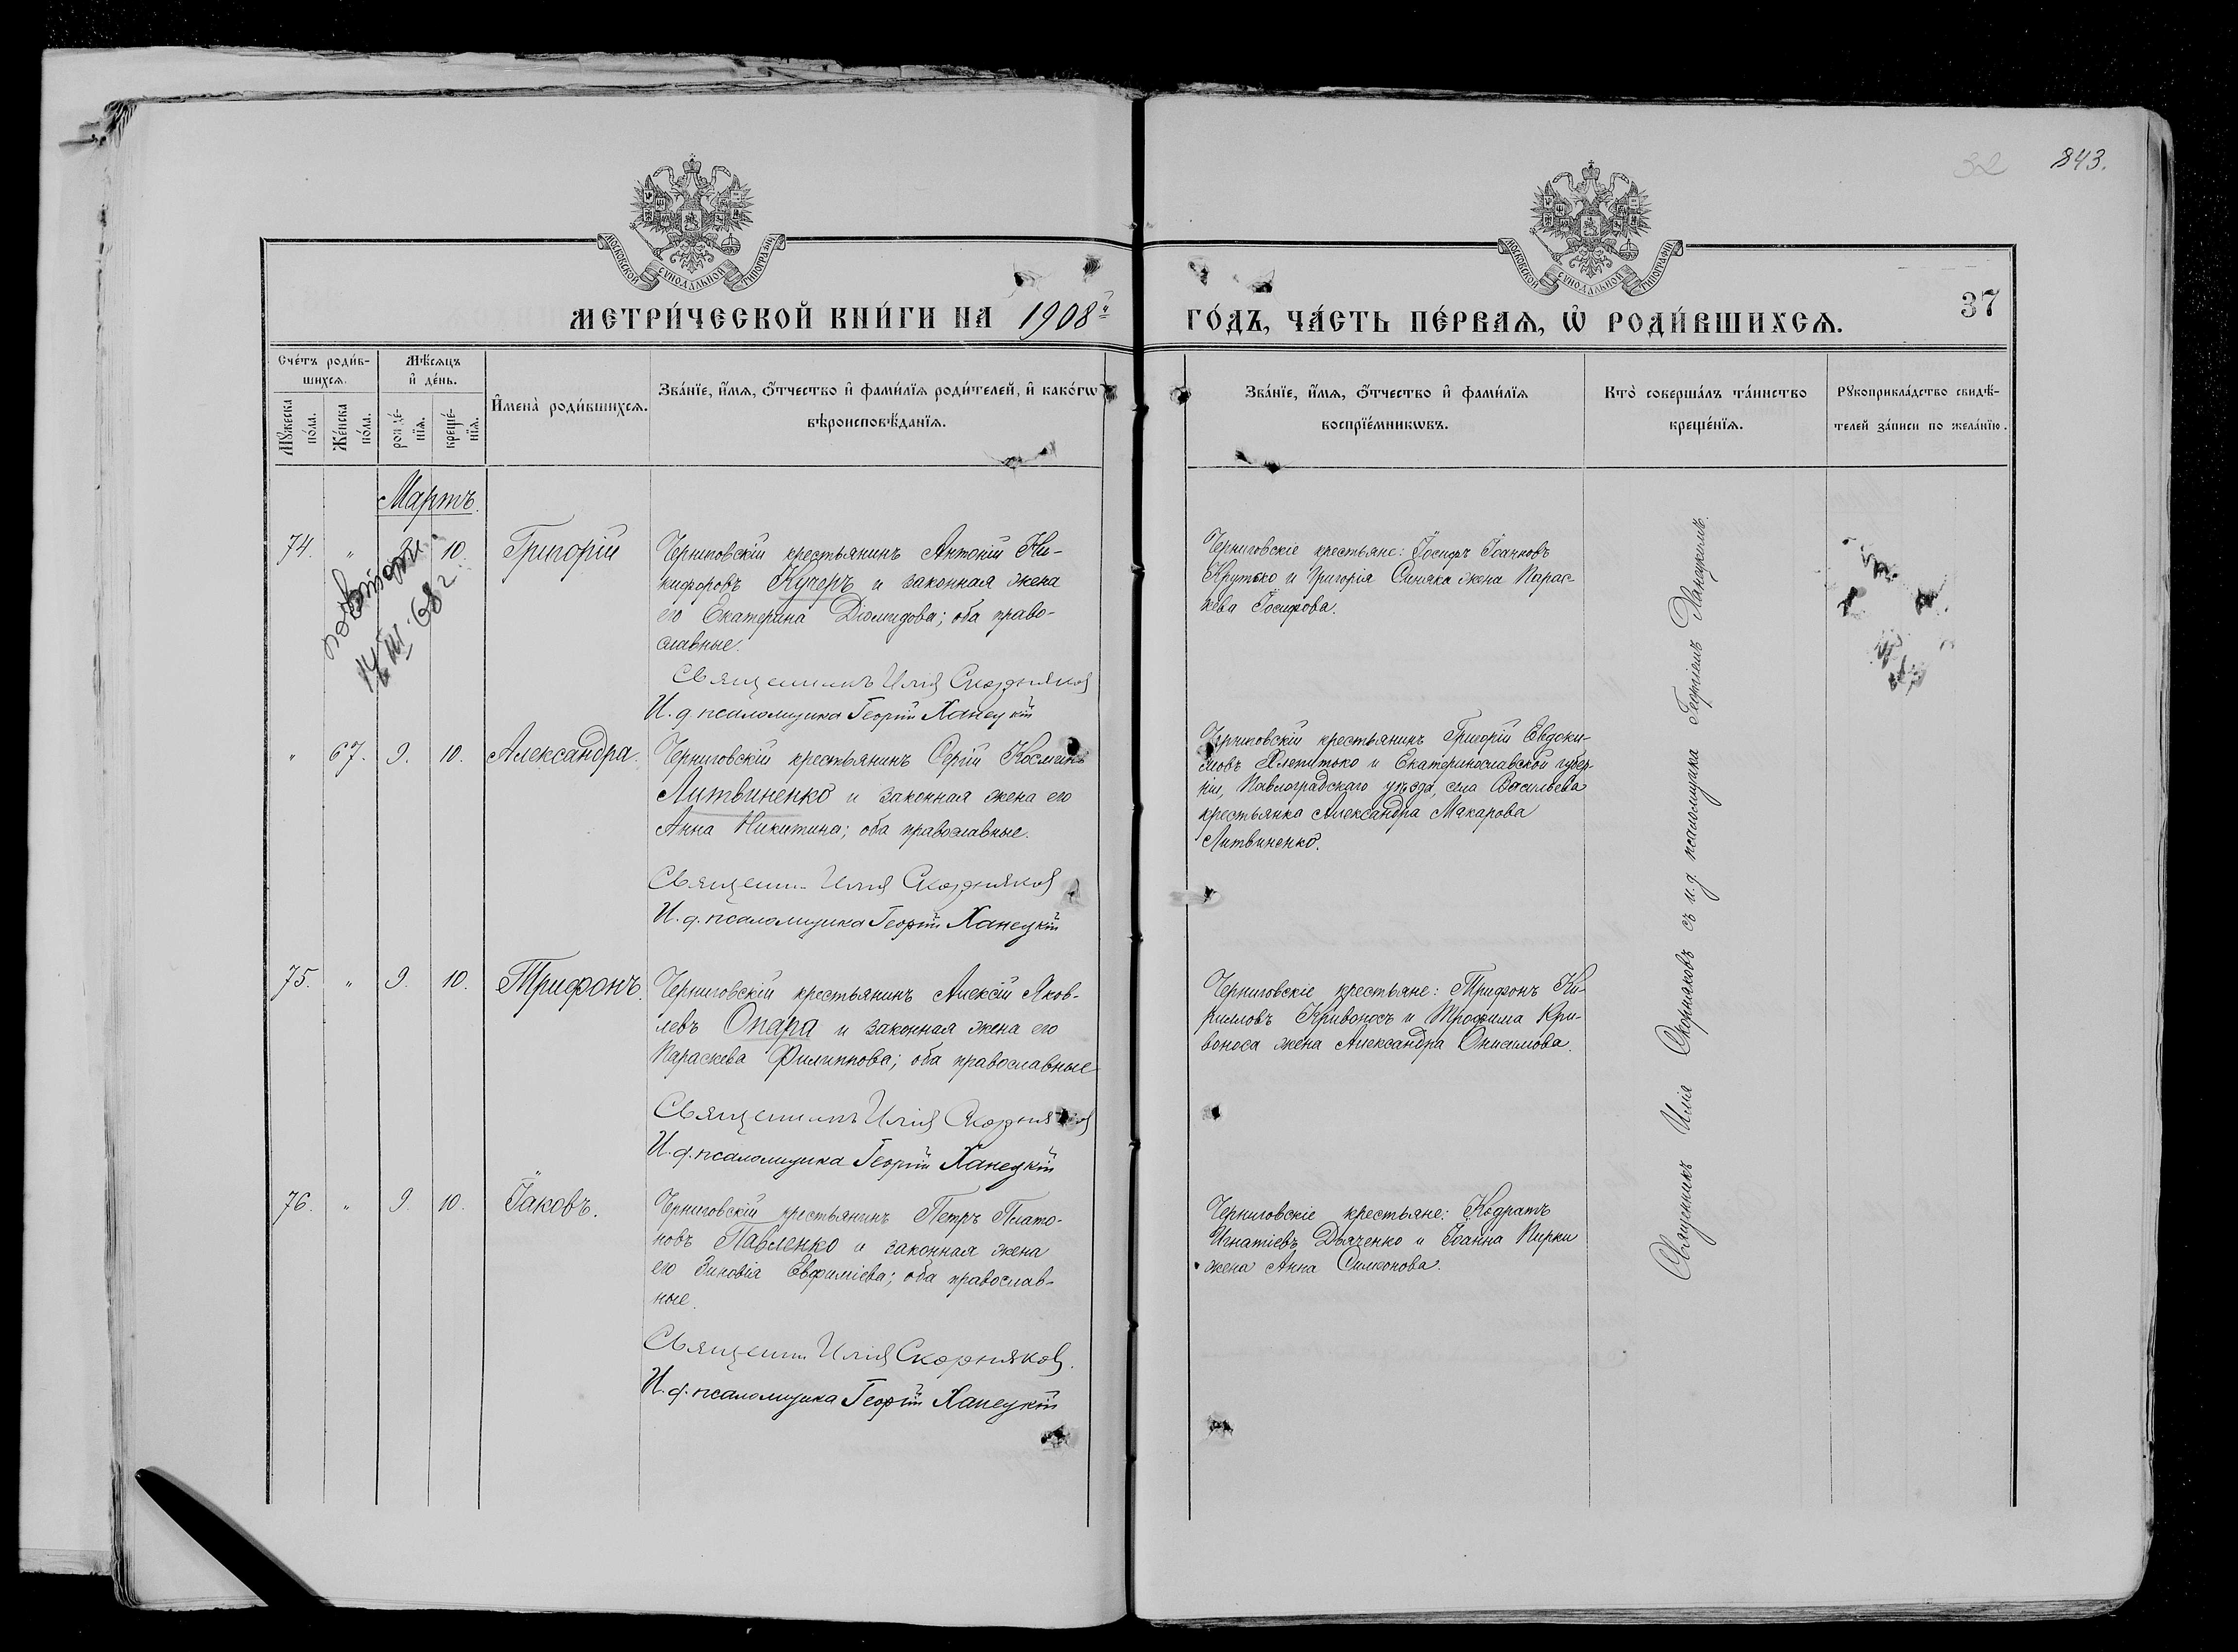 32 843.
МОСКОВСКОЙ СѴНОДАЛЬНОЙ ТИПОГРАФІИ
МОСКОВСКОЙ СѴНОДАЛЬНОЙ ТИПОГРАФІИ
МЕТРИ́ЧЕСКОЙ КНИ́ГИ НА 1908й ГО́ДЪ, ЧА́СТЬ ПЕ́РВАѦ, Ѡ҆ РОДИ́ВШИХСѦ.
37
Сче́тъ роди́в-
шихсѧ.
Мѣ́сѧцъ
и҆ де́нь.
Мꙋ́жеска
по́ла.
Же́нска
по́ла.
рожде́-
нїѧ.
креще́-
нїѧ.
И҆мена̀ роди́вшихсѧ.
Зва́нїе, и҆́мѧ, ѻ҆́тчество и҆ фами́лїѧ роди́телей, и҆ како́гѡ
вѣроисповѣ́данїѧ.
Зва́нїе, и҆́мѧ, ѻ҆́тчество и҆ фами́лїѧ
воспрїе́мникѡвъ.
Кто̀ соверша́лъ та́инство
креще́нїѧ.
Рꙋкоприкла́дство свидѣ́-
телей за́писи по жела́нїю.
Мартъ.
74. " 10. Григорій
Черниговскій крестьянинъ Антоній Ни-
кифоровъ Кучеръ и законная жена
его Екатерина Діомидова; оба право-
славные.
Священникъ Илія Скорняковъ
И. д. псаломщика Георгій Ханецкій
повторн.
14 III 68 г.
Черниговскіе крестьяне: Іосифъ Іоанновъ
Крутько и Григорія Синяка жена Парас-
кева Іосифова.
" 67. 9. 10. Александра.
Черниговскій крестьянинъ Сергій Космин
Литвиненко и законная жена его
Анна Никитина; оба православные.
Священни Илія Скорняковъ
И. д. псаломщика Георгій Ханецкій
Черниговскій крестьянинъ Григорій Евдоки-
мовъ Хлепитько и Екатеринославской губер-
ніи, Павлоградскаго уѣзда, села Васильевка
крестьянка Александра Макарова
Литвиненко.
75. " 9. 10. Трифонъ.
Черниговскій крестьянинъ Алексій Яков-
левъ Опара и законная жена его
Параскева Филиппова; оба православные
Священникъ Илія Скорняковъ
И. д. псаломщика Георгій Ханецкій
Черниговскіе крестьяне: Трифонъ Ки-
рилловъ Кривоносъ и Трофима Кри-
воноса жена Александра Онисимова.
76. " 9. 10. Іаковъ.
Черниговскій крестьянинъ Петръ Плато-
новъ Павленко и законная жена
его Зиновія Евфиміева; оба православ-
ные.
Священни Илія Скорняковъ.
И. д. псаломщика Георгій Ханецкій
Черниговскіе крестьяне: Кодратъ
Игнатіевъ Дьяченко и Іоанна Пирки
жена Анна Симонова.
Священникъ Илія Скорняковъ съ и.д. псаломщика Георгіемъ Ханецкимъ.